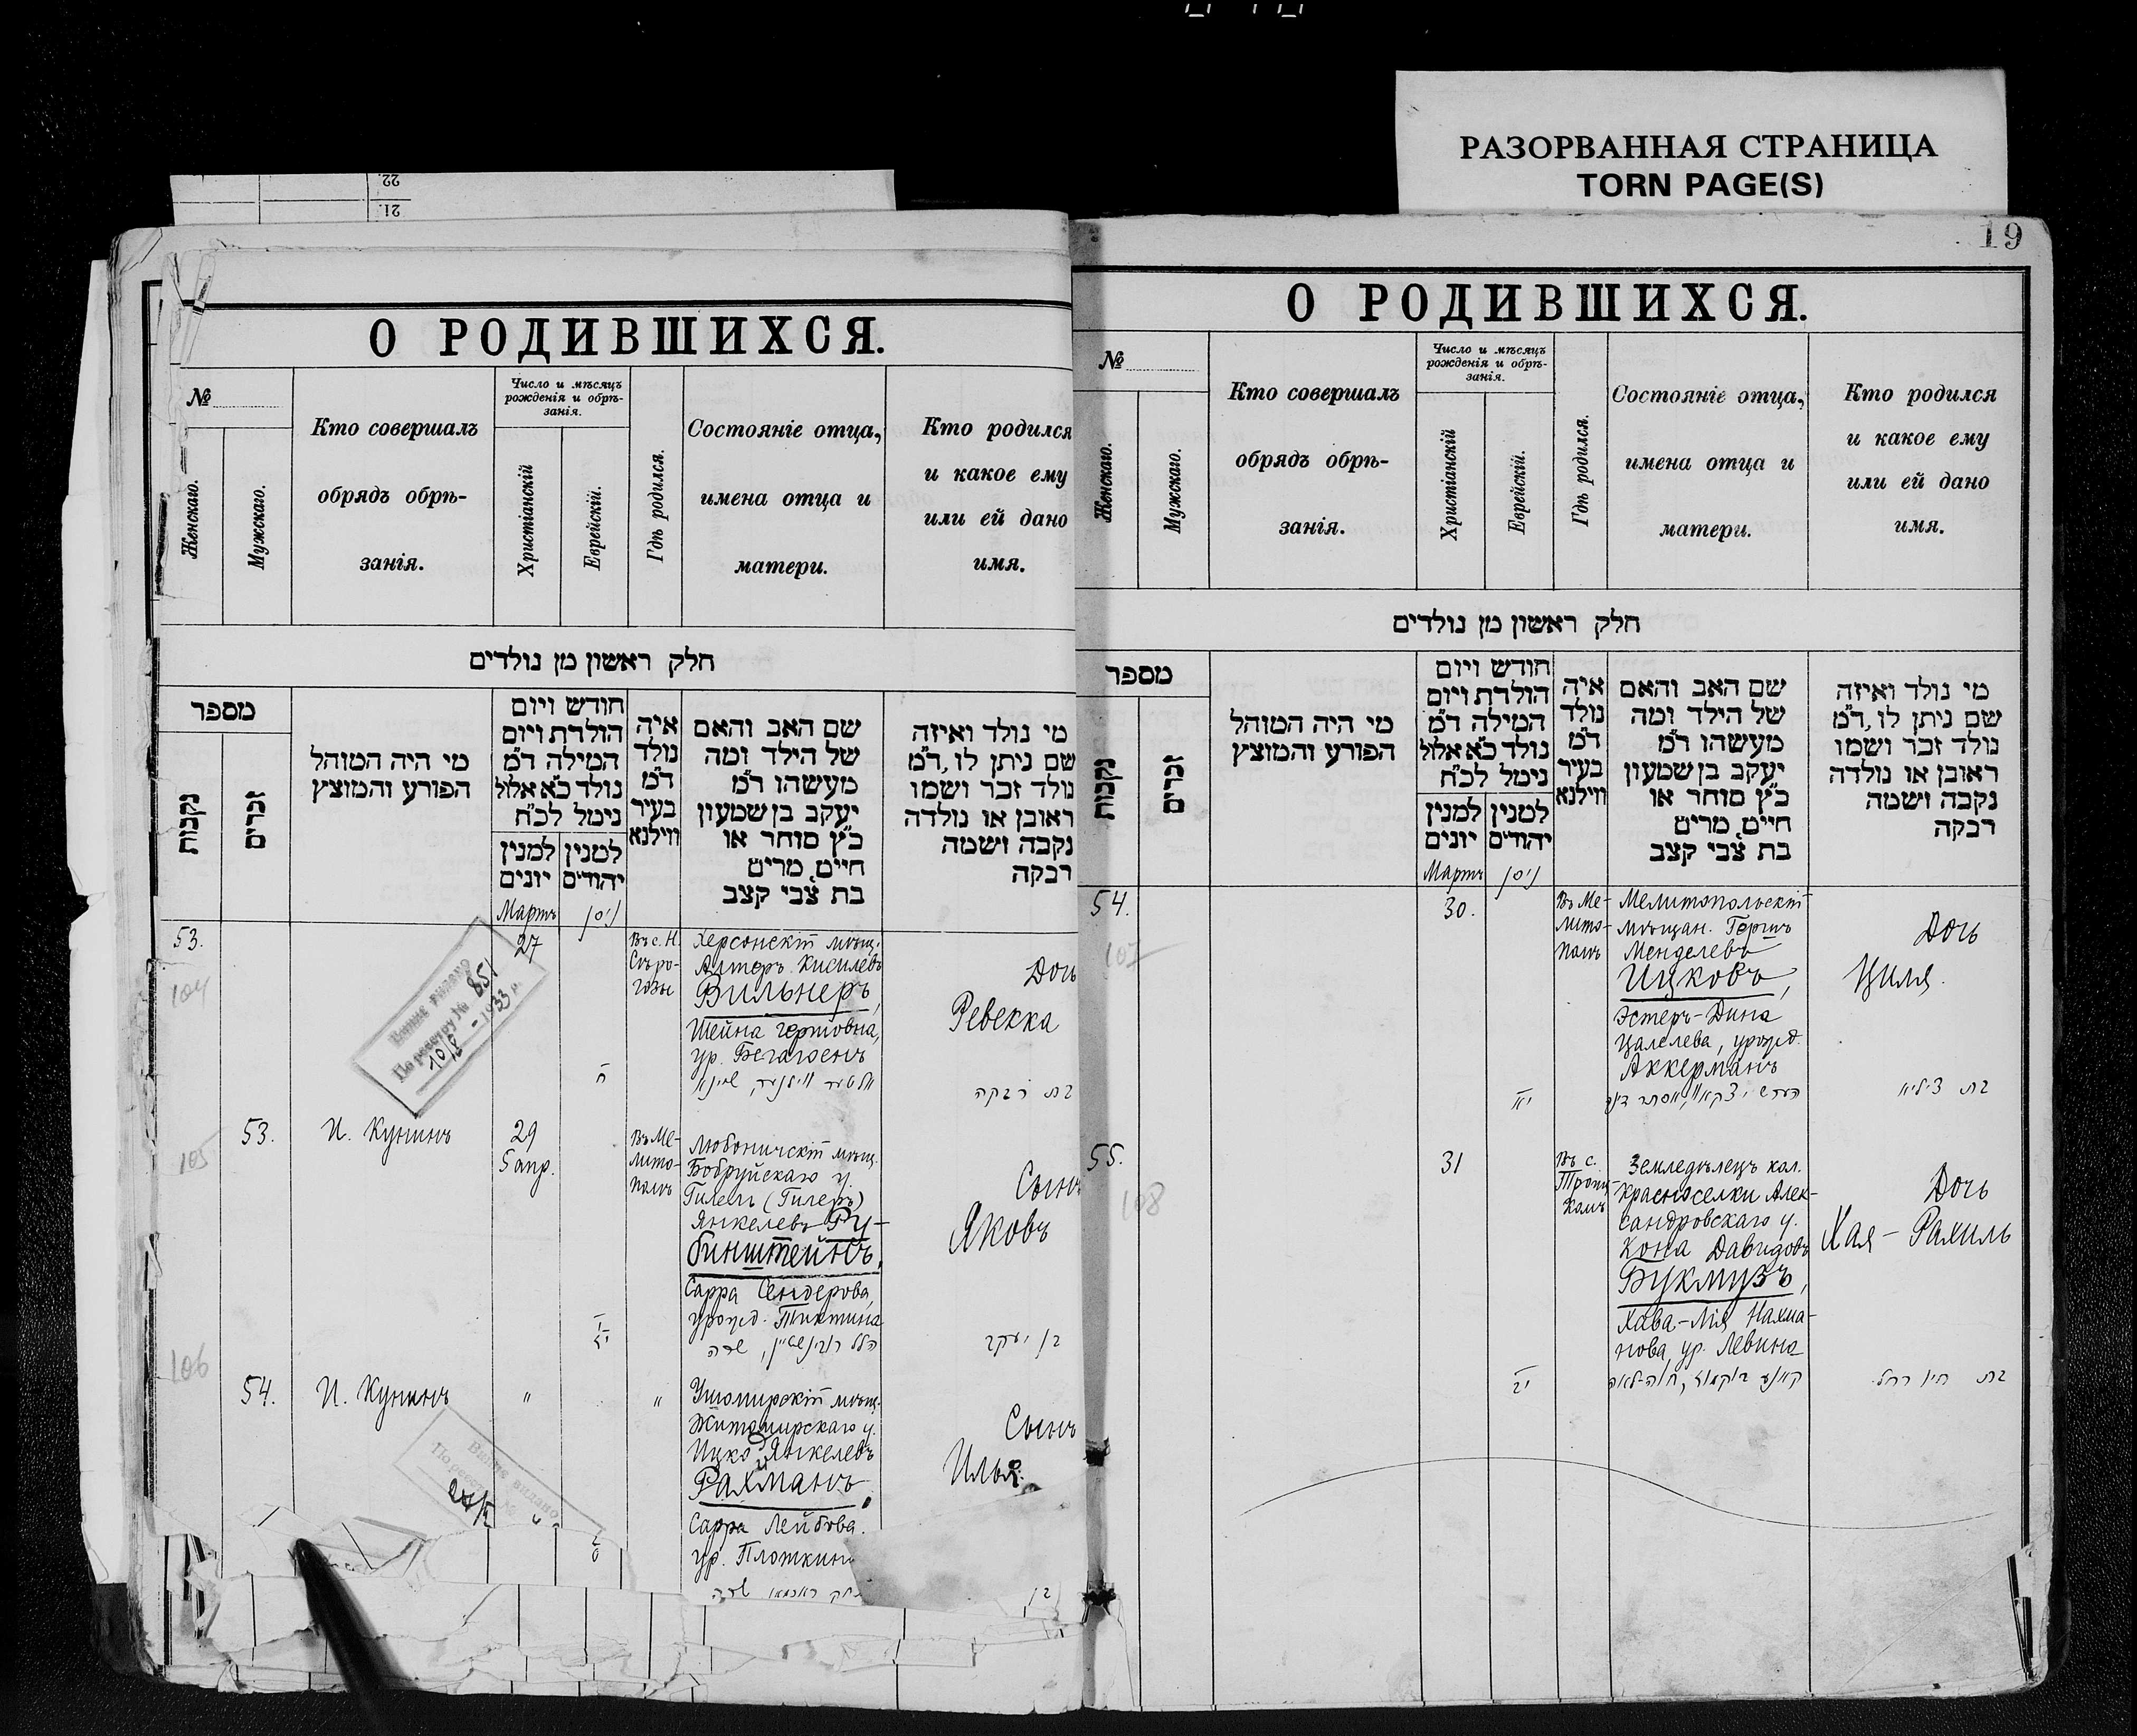 РАЗОРВАННАЯ СТРАНИЦА
TORN PAGE(S)
22.
21.
О РОДИВШИХСЯ.
№
Женскаго.
Мужскаго.
Кто совершалъ
обрядъ обрѣ-
занія.
Число и мѣсяцъ
рожденія и обрѣ-
занія.
Христіанскій
Еврейскій.
Гдѣ родился.
Состояніе отца,
имена отца и
матери.
Кто родился
и какое ему
или ей дано
имя.
חלק ראשון מן נולדים
מספר
נקבות
זכרים
מי היה המוהל
הפורע והמוצץ
חודש ויום
הולדת ויום
המילה ד״מ
נולד כ״א אלול
נימל לכ״ח
למנין
יונים
למנין
יהודים
איה
נולד
ד״מ
בעיר
ווילנא
שם האב והאם
של הילד ומה
מעשהו ד״מ
יעקב בן שמעון
כ״ץ סוחר או
חיים, מרים
בת צבי קצב
מי נולד ואיזה
שם ניתן לו, ד״מ
נולד זכר ושמו
ראובן או נולדה
נקבה ושמה
רבקה
Мартъ
ניסן
53.
104
27
ח
Въ с. Н.
Сѣро-
гозы
Херсонскій мѣщ.
Алтеръ Кисилевъ
Вильнеръ,
Шейна Гершовна,
ур.
אלטער ווילנער, שיינא
Дочь
Ревекка
בת רבקה
По реестру № 851
10/8 - 1933 г.
105
53.
И. Кунинъ
29
5 апр.
Въ Ме-
лито-
полѣ
Любоничскій мѣщ.
Бобруйскаго у.
Гилель (Гилеръ)
Янкелевъ Ру-
бинштейнъ,
Сарра Сендерова,
урожд. Тиктина
הלל רובינשטיין, שרה
Сынъ
Яковъ
בן יעקב
106
54.
И. Кунинъ
"
"
Ушомирскій мѣщ.
Житомирскаго у.
Ицко Янкелевъ
Рахманъ,
Сарра Лейбова.
ур. Плоткинъ
שרה
Сынъ
Илья.
בן
19
О РОДИВШИХСЯ.
№
Женскаго.
Мужскаго.
Кто совершалъ
обрядъ обрѣ-
занія.
Число и мѣсяцъ
рожденія и обрѣ-
занія.
Христіанскій
Еврейскій.
Гдѣ родился.
Состояніе отца,
имена отца и
матери.
Кто родился
и какое ему
или ей дано
имя.
חלק ראשון מן נולדים
מספר
נקבות
זכרים
מי היה המוהל
הפורע והמוצץ
חודש ויום
הולדת ויום
המילה ד״מ
נולד כ״א אלול
נימל לכ״ח
למנין
יונים
למנין
יהודים
איה
נולד
ד״מ
בעיר
ווילנא
שם האב והאם
של הילד ומה
מעשהו ד״מ
יעקב בן שמעון
כ״ץ סוחר או
חיים, מרים
בת צבי קצב
מי נולד ואיזה
שם ניתן לו, ד״מ
נולד זכר ושמו
ראובן או נולדה
נקבה ושמה
רבקה
Мартъ
ניסן
54.
107
30.
יא
Въ Ме-
лито-
полѣ
Мелитопольскій
мѣщан. Гершъ
Менделевъ
Ицковъ,
Эстеръ-Дина
Цалелева, урожд.
Аккерманъ
Дочь
Циля.
בת ציליא
55.
108
31
יב
Въ с.
Троиц-
комъ
Земледѣлецъ кол.
Красноселки Алек-
сандровскаго у.
Кона Давидовъ
Букмузъ,
Хава-Лія Нахма-
нова, ур. Левина
חוה-לאה
Дочь
Хая-Рахиль
בת חיה רחל.